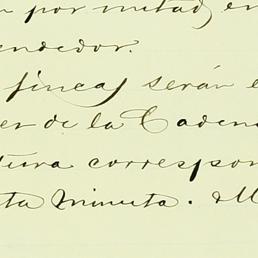 por mitad, en
endedor.
fincas serán e
er de la Caden
tura correspon
ta minuta. M